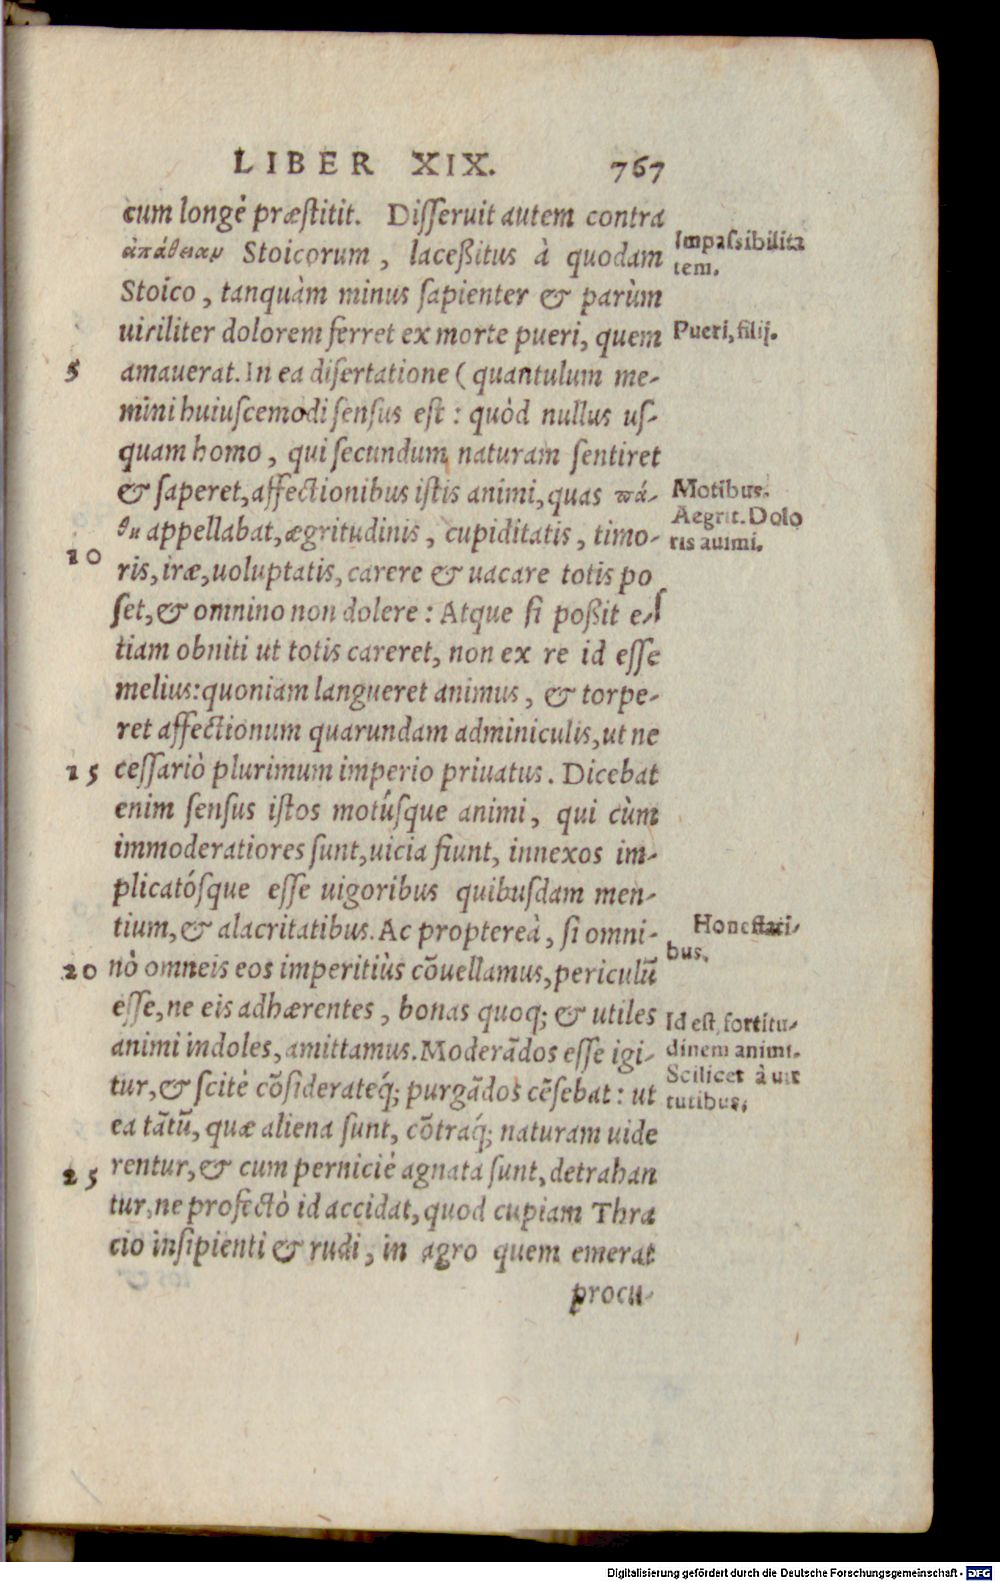 LIBER XIX. 767
cum longè præstitit. Disseruit autem contra
ἀπάθειαν Stoicorum, laceßitus à quodam
Stoico, tanquàm minus sapienter & parùm
uiriliter dolorem ferret ex morte pueri, quem
5 amauerat. In ea disertatione (quantulum me-
mini huiuscemodi sensus est: quòd nullus us-
quam homo, qui secundum naturam sentiret
& saperet, affectionibus istis animi, quas πά-
θη appellabat, ægritudinis, cupiditatis, timo-
10 ris, iræ, uoluptatis, carere & uacare totis pos
set, & omnino non dolere: Atque si poßit e-
tiam obniti ut totis careret, non ex re id esse
melius: quoniam langueret animus, & torpe-
ret affectionum quarundam adminiculis, ut ne
15 cessariò plurimum imperio priuatus. Dicebat
enim sensus istos motúsque animi, qui cùm
immoderatiores sunt, uicia fiunt, innexos im-
plicatósque esse uigoribus quibusdam men-
tium, & alacritatibus. Ac proptereà, si omni-
20 nò omneis eos imperitiùs cōuellamus, periculū
esse, ne eis adhærentes, bonas quoq; & utiles
animi indoles, amittamus. Moderādos esse igi-
tur, & scitè cōsideratéq; purgādos cēsebat: ut
ea tātū, quæ aliena sunt, cōtráq; naturam uide
25 rentur, & cum pernicie agnata sunt, detrahan
tur, ne profectò id accidat, quod cupiam Thra
cio insipienti & rudi, in agro quem emerat
procu-
Impassibilita
tem.
Pueri, filij.
Motibus.
Aegrit. Dolo
ris animi.
Honestati-
bus.
Id est, fortitu-
dinem animi.
Scilicet à uir
tutibus.
Digitalisierung gefördert durch die Deutsche Forschungsgemeinschaft - DFG